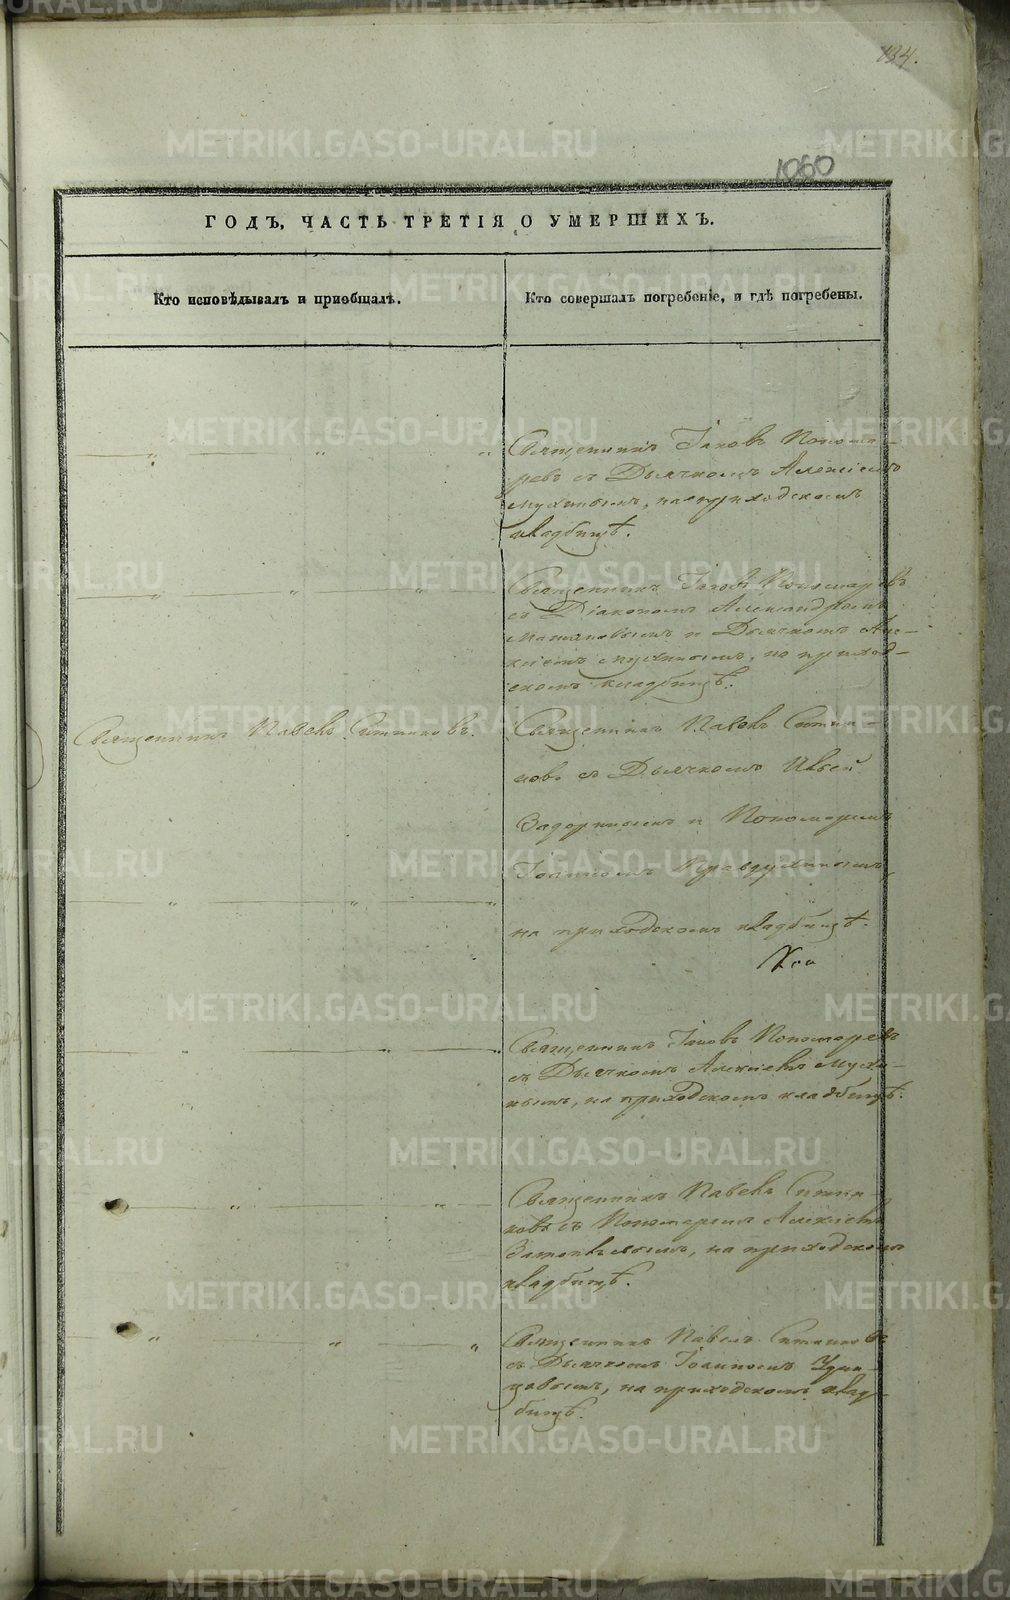 134.
1060
ГОДЪ, ЧАСТЬ ТРЕТІЯ О УМЕРШИХЪ.
Кто исповѣдывалъ и пріобщалъ.
Кто совершалъ погребеніе, и гдѣ погребены.
Священникъ Іаковъ Понома-
ревъ съ Дьячкомъ Алексіемъ
Мухинымъ, на приходскомъ
кладбищѣ.
Священникъ Іаковъ Пономаревъ
съ Діакономъ Александромъ
и Дьячкомъ Але-
ксіемъ Мухинымъ, на приход-
скомъ кладбищѣ.
Священникъ Павелъ Ситниковъ.
Священникъ Павелъ Ситни-
ковъ съ Дьячкомъ
Задоринымъ и Пономаремъ
Іоанномъ
на приходскомъ кладбищѣ.
Священникъ Іаковъ Пономаревъ
съ Дьячкомъ Алексіемъ Мухи-
нымъ, на приходскомъ кладбищѣ.
Священникъ Павелъ Ситни-
ковъ съ Пономаремъ Алексіемъ
на приходскомъ
кладбищѣ.
Священникъ Павелъ Ситниковъ
съ Дьячкомъ Іоанномъ Удин-
цовымъ, на приходскомъ клад-
бищѣ.
METRIKI.GASO-URAL.RU